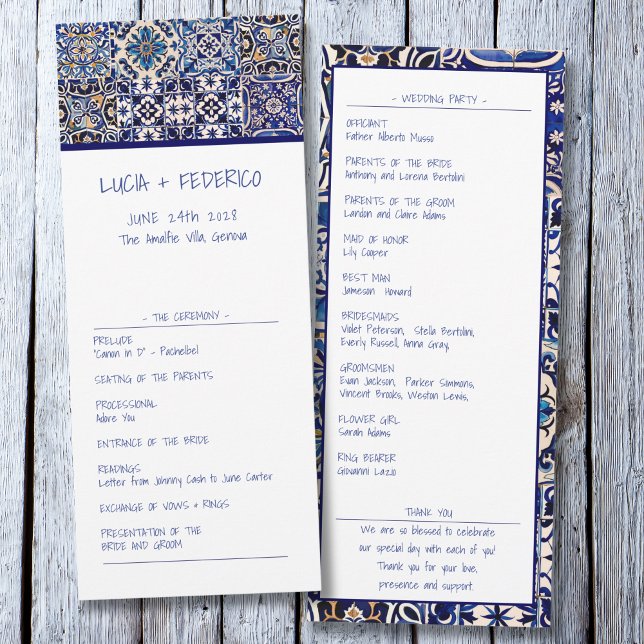 LUCIA + FEDERICO
JUNE 24th 2028
The Amalfie Villa, Genova
- THE CEREMONY -
PRELUDE
"Canon in D" - Pachelbel
SEATING OF THE PARENTS
PROCESSIONAL
Adore You
ENTRANCE OF THE BRIDE
READINGS
Letter from Johnny Cash to June Carter
EXCHANGE OF VOWS & RINGS
PRESENTATION OF THE
BRIDE AND GROOM
- WEDDING PARTY -
OFFICIANT
Father Alberto Musso
PARENTS OF THE BRIDE
Anthony and Lorena Bertolini
PARENTS OF THE GROOM
Landon and Claire Adams
MAID OF HONOR
Lily Cooper
BEST MAN
Jameson Howard
BRIDESMAIDS
Violet Peterson, Stella Bertolini,
Everly Russell, Anna Gray,
GROOMSMEN
Evan Jackson, Parker Simmons,
Vincent Brooks, Weston Lewis,
FLOWER GIRL
Sarah Adams
RING BEARER
Giovanni Lazio
THANK YOU
We are so blessed to celebrate
our special day with each of you!
Thank you for your love,
presence and support.